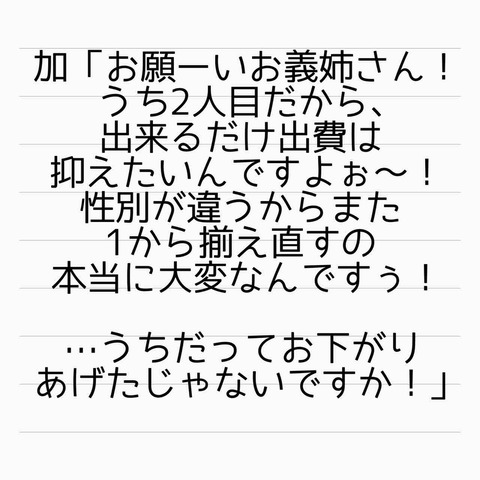 加「お願ーいお義姉さん！
うち2人目だから、
出来るだけ出費は
抑えたいんですよぉ〜！
性別が違うからまた
1から揃え直すの
本当に大変なんですぅ！
…うちだってお下がり
あげたじゃないですか！」